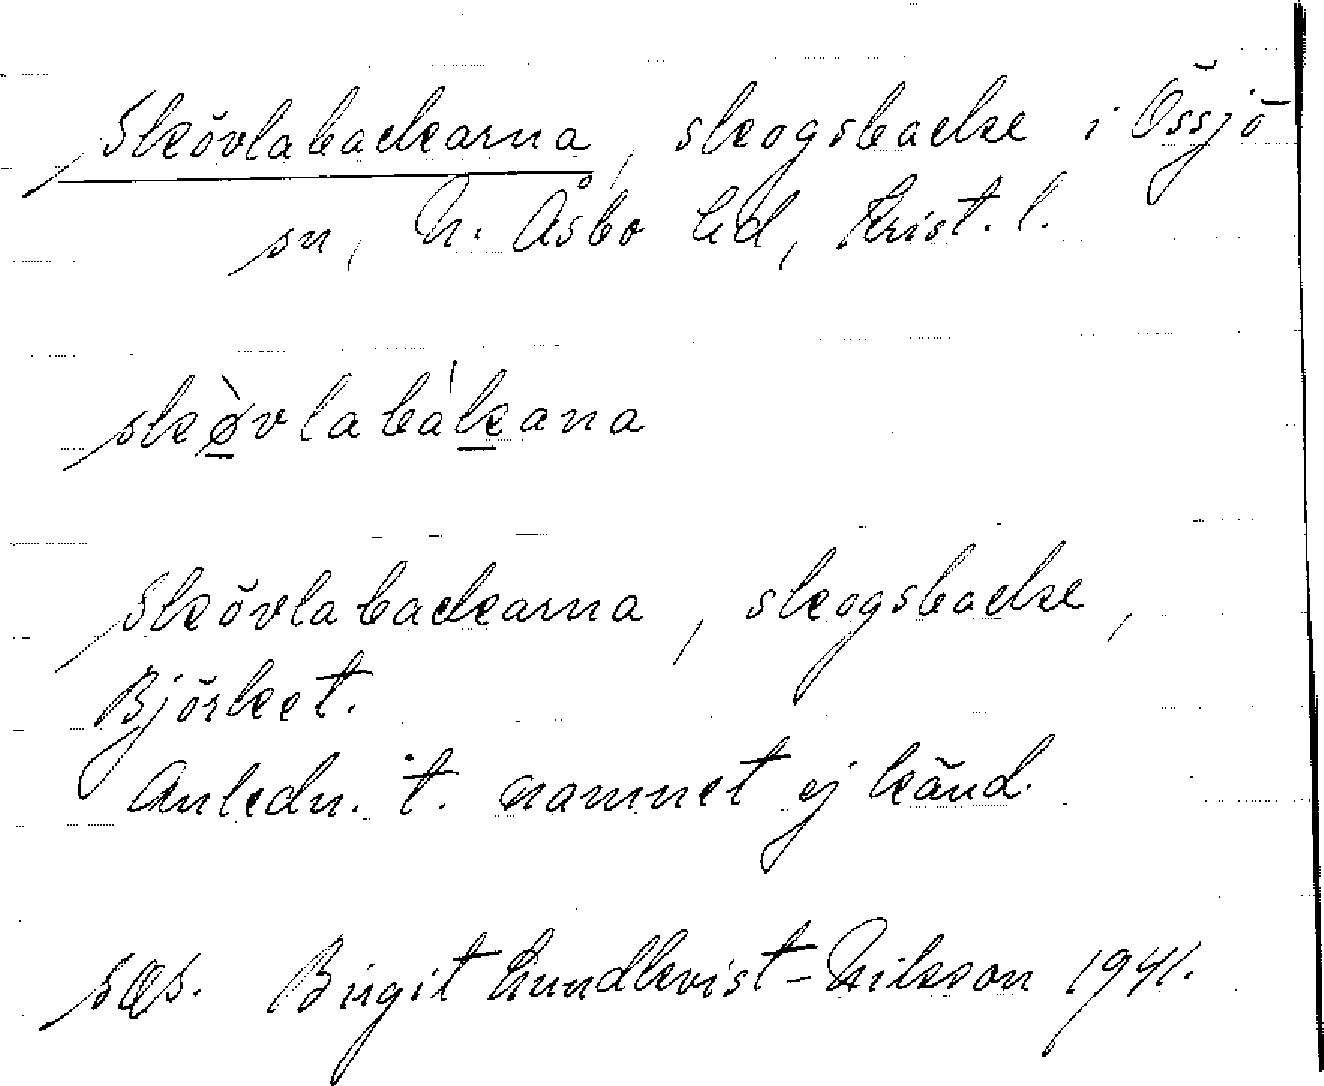 Skövlabackarna, skogsbacke i Össjö
sn, N. Åsbo hd, Krist. l.
skø̀vlabák̲ana
Skövlabackarna, skogsbacke,
Björkeet.
Anledn. t. namnet ej känd.
Birgit Lundkvist-Nilsson 1941.